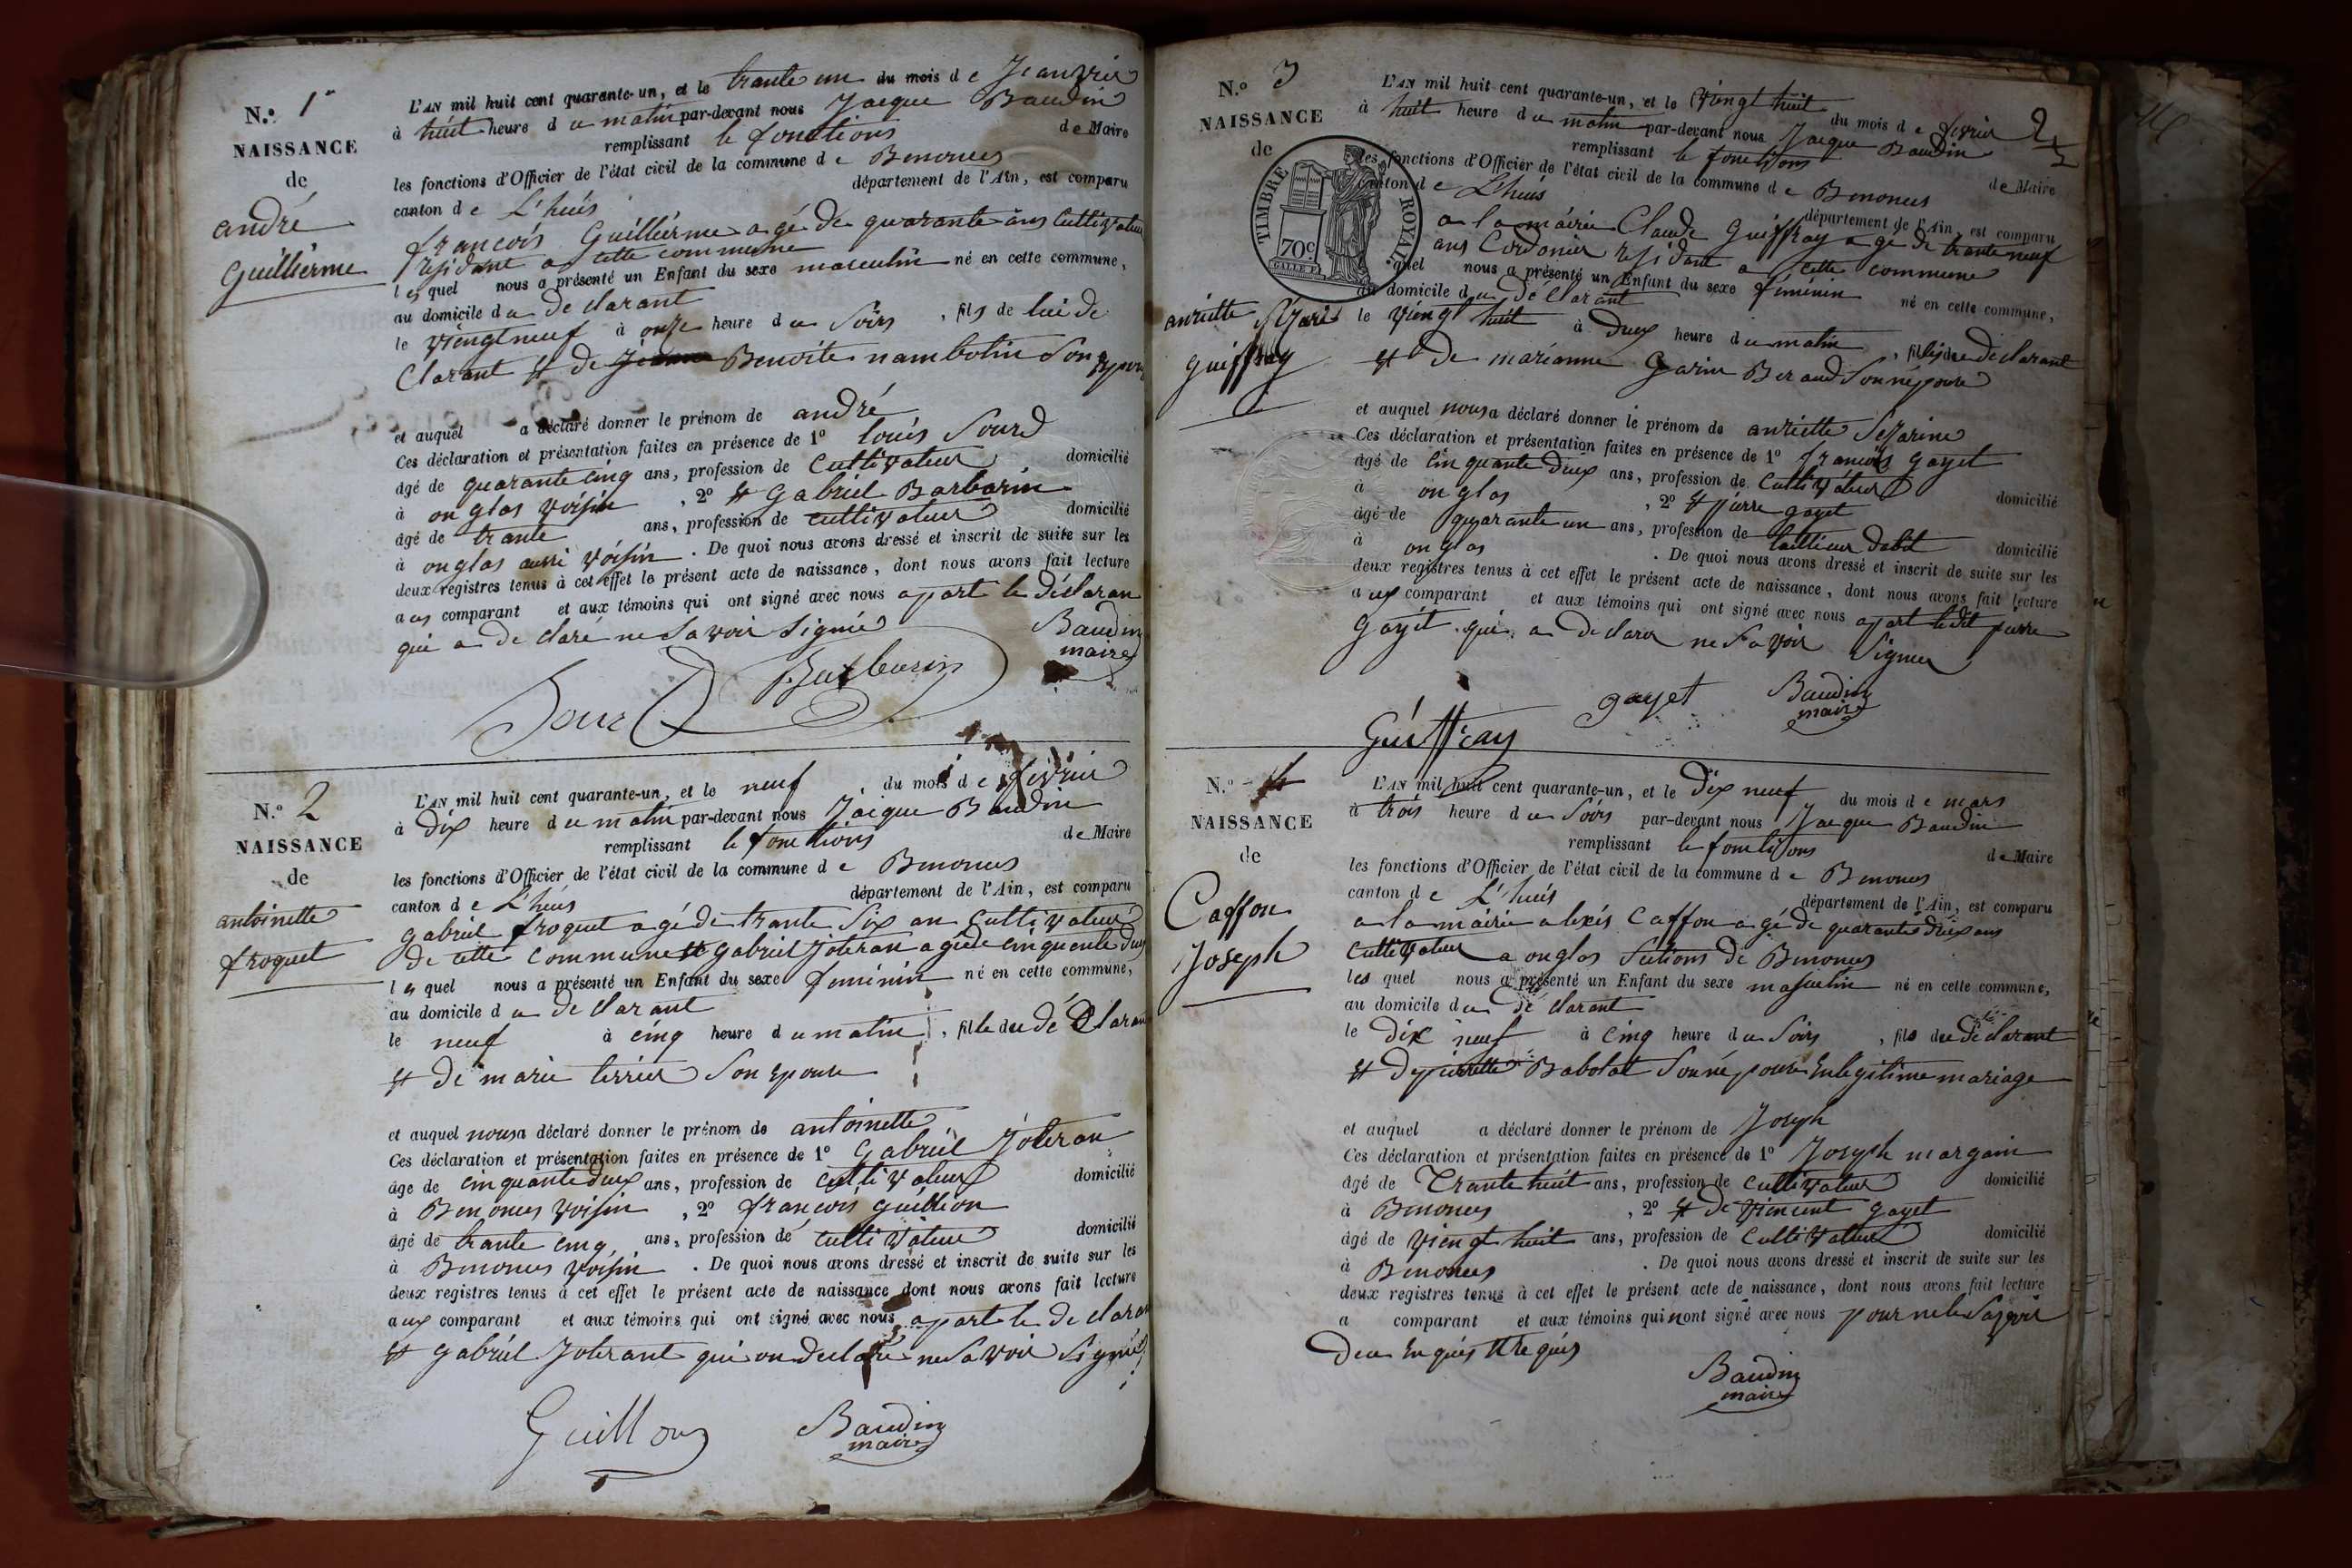 N.º 1
NAISSANCE
de
andré
Guillierme
L'AN mil huit cent quarante-un, et le trante un du mois de Jeanvier
à huit heure du matin par-devant nous Jacque Baudin
remplissant le fonctions de Maire
les fonctions d'Officier de l'état civil de la commune de Benonces
canton de L'huis département de l'Ain, est comparu
francois Guillierme agé de quarante ans Cultivateur
residant a cette commune
lesquel nous a présenté un Enfant du sexe masculin né en cette commune,
au domicile du De clarant
le viengt neuf à onze heure du Soirs, fils de lui de
Clarant et de Benoite nambotin Son epouse
et auquel a déclaré donner le prénom de andré
Ces déclaration et présentation faites en présence de 1º louis Sourd
âgé de quarante cinq ans, profession de Cultivateur domicilié
à onglas voisin, 2º et Gabriel Barbarin
âgé de trante ans, profession de cultivateur domicilié
à onglas aussi voisin. De quoi nous avons dressé et inscrit de suite sur les
deux registres tenus à cet effet le présent acte de naissance, dont nous avons fait lecture
aus comparant et aux témoins qui ont signé avec nous apart le déclaran
qui a de claré ne Savoir Signié
Baudin
maire
Barbarin
Sourd
N.º 2
NAISSANCE
de
antoinette
froquet
L'AN mil huit cent quarante-un, et le neuf du mois de fevrier
à Dix heure du matin par-devant nous Jacque Baudin
remplissant le fonctions de Maire
les fonctions d'Officier de l'état civil de la commune de Benonces
canton de L'huis département de l'Ain, est comparu
gabriel froquet agé de trante Six an Cultivateur
De cette Commune et gabriel Joteran agé de cinquente Dux
lesquel nous a présenté un Enfant du sexe feminin né en cette commune,
au domicile du De clarant
le neuf à cinq heure du matin, fille du dé Claran
et De marie terrier Son epouse
et auquel nousa déclaré donner le prénom de antoinette
Ces déclaration et présentation faites en présence de 1º Gabriel Joteran
âgé de cinquante dux ans, profession de cultivateur domicilié
à Benonces voisin, 2º francois guillion
âgé de trante cinq ans, profession de cultivateur domicilié
à Benonces voisin. De quoi nous avons dressé et inscrit de suite sur les
deux registres tenus à cet effet le présent acte de naissance dont nous avons fait lecture
aux comparant et aux témoins qui ont signé avec nous apart le de claran
et gabriel Joterant qui on declare ne Savoir Signié
Guillon
Baudin
maire
N.º 3
NAISSANCE
de
TIMBRE ROYAL
70 c
anriette
guiffray
L'AN mil huit cent quarante-un, et le viengt huit du mois de fevrier
2
à huit heure du matin par-devant nous Jacque Baudin
remplissant le fonctions de Maire
les fonctions d'Officier de l'état civil de la commune de Benonces
canton de L'huis département de l'Ain, est comparu
a la mairie Claude Guiffray agé de trante neuf
ans Cordonier residant a cette commune
quel nous a présenté un Enfant du sexe feminin né en cette commune,
au domicile du Dé clarant
le viengt huit à Deux heure du matin, fille du declarant
et de marianne Garin Beraud Son népouse
et auquel nousa déclaré donner le prénom de anriette Sezarine
Ces déclaration et présentation faites en présence de 1º francois gayet
âgé de cinquante Deux ans, profession de Cultivateur domicilié
à onglas, 2º et pierre gayet
âgé de quarante un ans, profession de tallieur dabit domicilié
à onglas. De quoi nous avons dressé et inscrit de suite sur les
deux registres tenus à cet effet le présent acte de naissance, dont nous avons fait lecture
aux comparant et aux témoins qui ont signé avec nous apart ledit pierre
Gayet qui a declarer ne Savoir Signer
gayet
Baudin
maire
Guiffray
N.º 4
NAISSANCE
de
Caffon
Joseph
L'AN mil huit cent quarante-un, et le Dix neuf du mois de mars
à trois heure du Soirs par-devant nous Jacque Baudin
remplissant le fonctions de Maire
les fonctions d'Officier de l'état civil de la commune de Benonces
canton de L'huis département de l'Ain, est comparu
a la mairie alexis Caffon agé de quarante deux ans
Cultivateur a onglas Sections de Benonces
lesquel nous a présenté un Enfant du sexe masculin né en cette commune,
au domicile du De clarant
le Dix neuf à Cinq heure du Soirs, fils du declarant
et de pierrette Babolat Son népouse En legitime mariage
et auquel a déclaré donner le prénom de Joseph
Ces déclaration et présentation faites en présence de 1º Joseph margain
âgé de Trante huit ans, profession de cultivateur domicilié
à Benonces, 2º et De Viencent gayet
âgé de viengt huit ans, profession de Cultivateur domicilié
à Benonces. De quoi nous avons dressé et inscrit de suite sur les
deux registres tenus à cet effet le présent acte de naissance, dont nous avons fait lecture
a comparant et aux témoins qui nont signé avec nous pour ne le Savoir
De ce Enquis
Baudin
maire